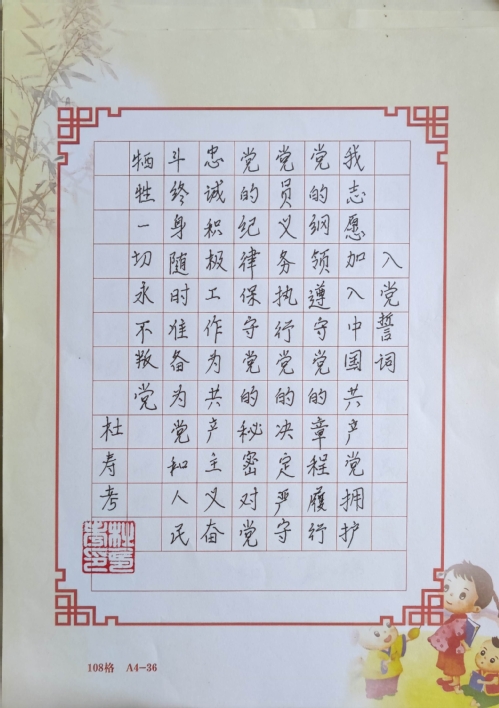 入党誓词
我志愿加入中国共产党拥护
党的纲领遵守党的章程履行
党员义务执行党的决定严守
党的纪律保守党的秘密对党
忠诚积极工作为共产主义奋
斗终身随时准备为党和人民
牺牲一切永不叛党
杜寿考
108格 A4-36